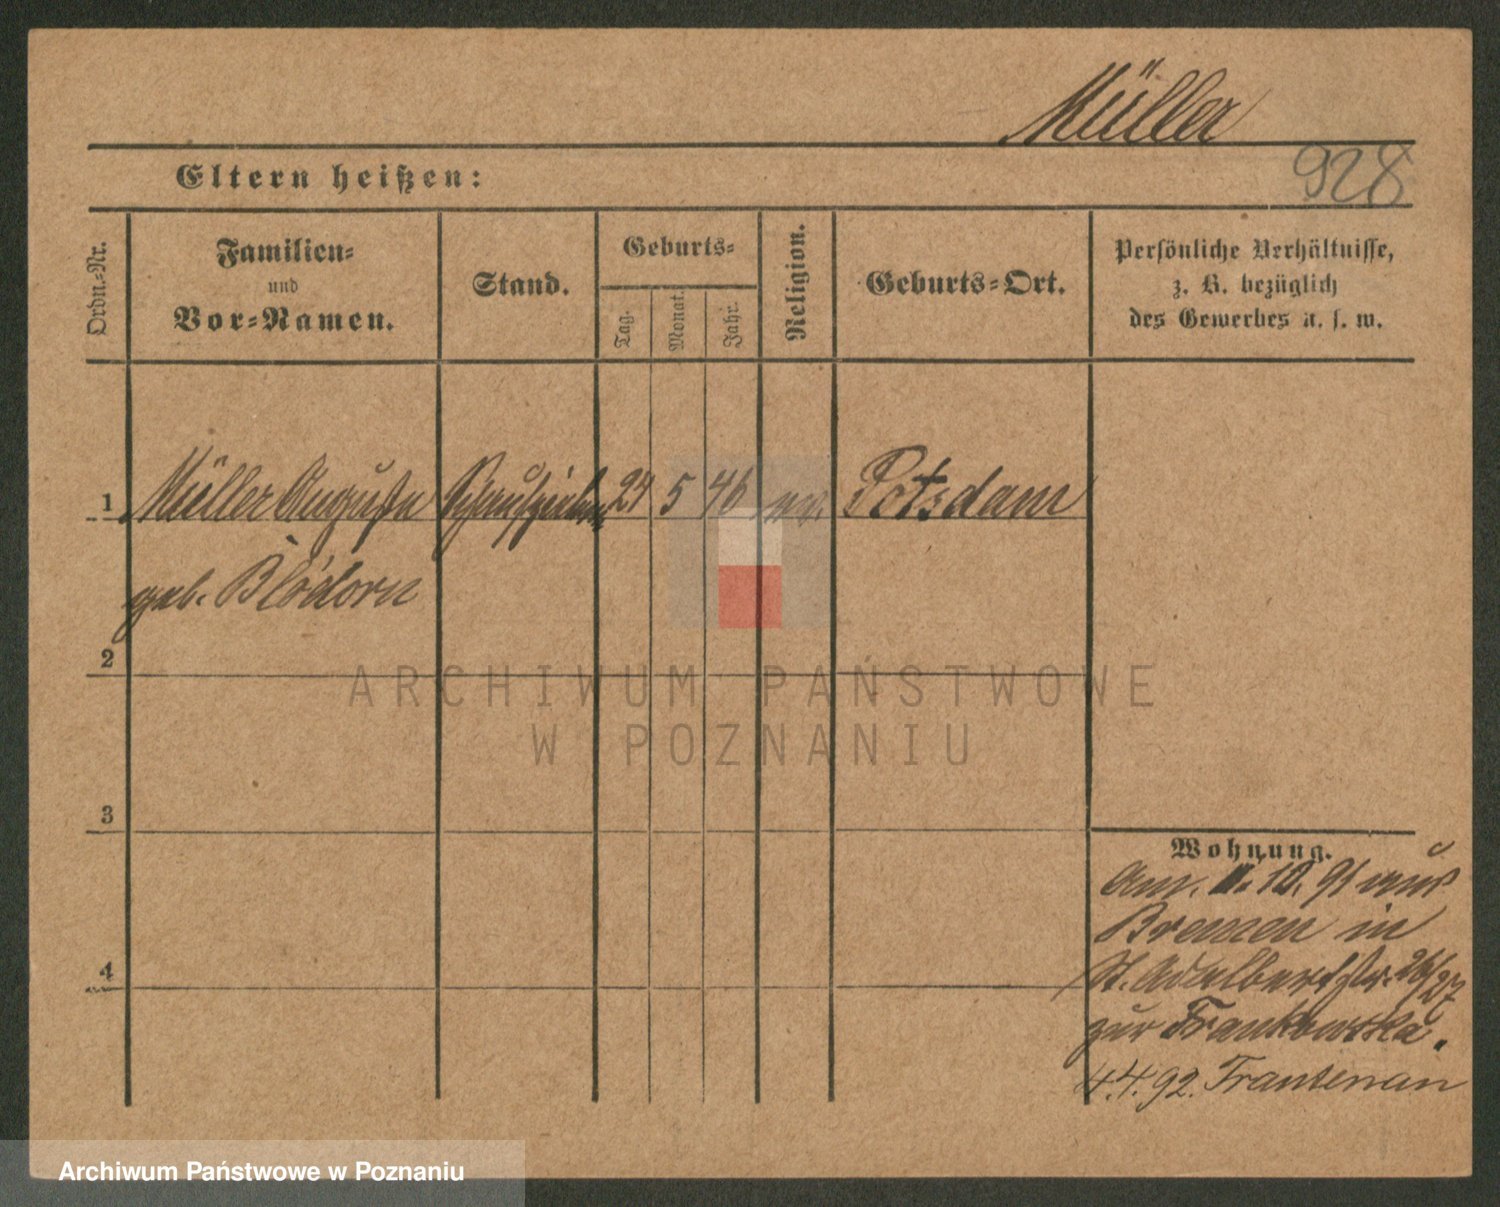 Müller
928
Eltern heißen:
Ordn.-Nr.
Familien-
und
Vor-Namen.
Stand.
Geburts-
Tag.
Monat.
Jahr.
Religion.
Geburts-Ort.
Persönliche Verhältnisse,
z. B. bezüglich
des Gewerbes u. s. w.
1 Müller Auguste Schauspielerin 24 5 46 ev. Potsdam
geb. Blödorn
2
3
4
Wohnung.
Am. 10. 91 aus
Bremen in
St. Adalbertstr. 26/27
zur Frankowska.
4.4.92. Frantenau
ARCHIWUM PAŃSTWOWE
W POZNANIU
Archiwum Państwowe w Poznaniu